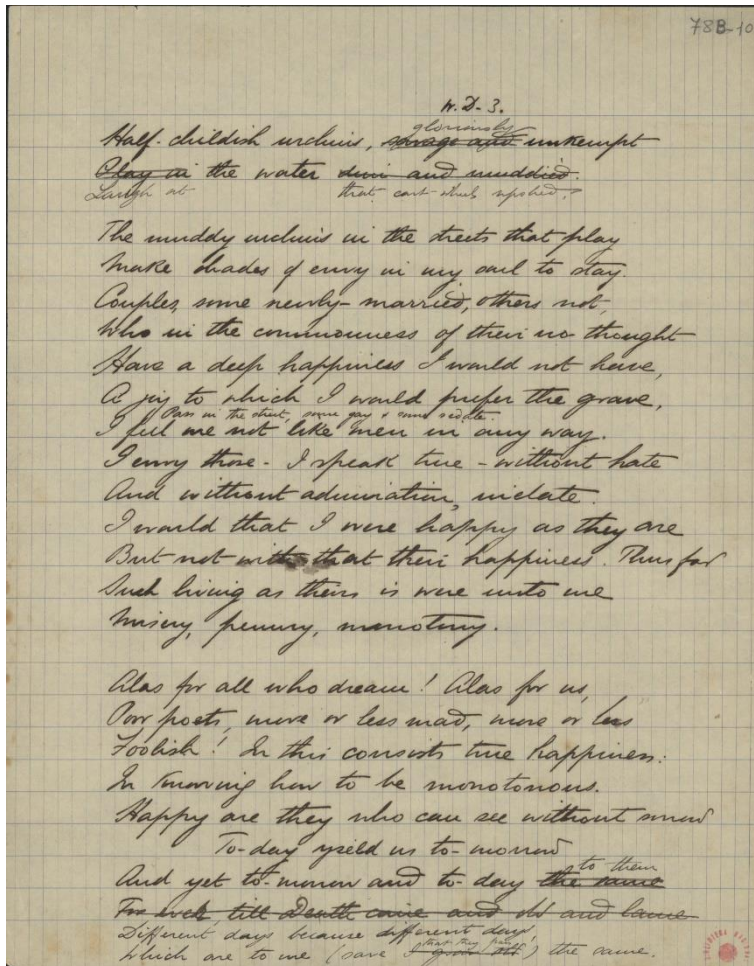 78B-10
W. D- 3.
gloriously
Half-childish urchins, savage and unkempt
Play in the water dim and muddied.
Laugh at that cart-wheels upshed?
The muddy urchins in the streets that play
Make shades of envy in my soul to stay.
Couples, some newly-married, others not,
Who in the commonness of their no-thought
Have a deep happiness I would not have,
A joy to which I would prefer the grave,
Pass in the street, some gay & some sedate.
I feel me not like men in any way.
I envy those - I speak true - without hate
And without admiration, inviolate.
I would that I were happy as they are
But not with that their happiness. Thus far
Such living as theirs is were unto me
Misery, penury, monotony.
Alas for all who dream! Alas for us,
Poor poets, more or less mad, more or less
Foolish! In this consists true happiness:
In knowing how to be monotonous.
Happy are they who can see without sorrow
To-day yield us to-morrow
to them
And yet to-morrow and to-day the same
For well till Death came and old and lame
Different days because different days,
that they pass
Which are to me (save I grow old) the same.